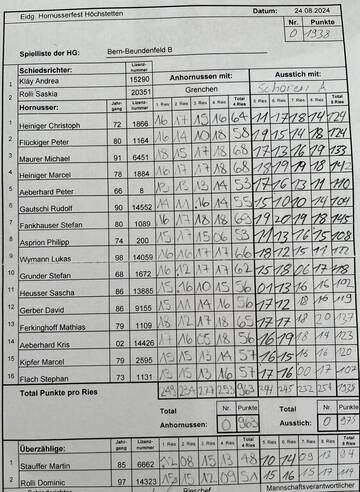 Eidg. Hornusserfest Höchstetten
Datum: 24.08.2024
Nr. Punkte
0 1938
Spielliste der HG: Bern-Beundenfeld B
Schiedsrichter: Lizenz-nummer Anhornussen mit: Ausstich mit:
1 Kläy Andrea 15290 Grenchen Schoren A
2 Rolli Saskia 20351
Hornusser: Jahr-gang Lizenz-nummer 1. Ries 2. Ries 3. Ries 4. Ries Total 4 Ries 5. Ries 6. Ries 7. Ries 8. Ries Total 8 Ries
1 Heiniger Christoph 72 1866 16 17 15 16 64 11 17 18 14 124
2 Flückiger Peter 80 1164 16 14 10 18 58 19 15 14 18 124
3 Maurer Michael 91 6451 18 15 17 18 68 17 13 16 19 133
4 Heiniger Marcel 78 1884 16 17 17 18 68 18 19 19 18 142
5 Aeberhard Peter 66 8 13 13 13 14 53 17 16 13 11 110
6 Gautschi Rudolf 90 14552 14 11 16 14 55 15 10 10 14 104
7 Fankhauser Stefan 80 1089 16 17 18 18 69 19 20 19 18 145
8 Asprion Philipp 74 200 15 17 15 06 53 11 13 16 15 108
9 Wymann Lukas 98 14059 16 16 17 17 66 18 12 15 11 122
10 Grunder Stefan 68 1672 16 12 17 17 62 15 18 06 17 118
11 Heusser Sascha 86 13885 15 16 10 15 56 01 13 16 16 102
12 Gerber David 86 9155 15 11 14 16 56 17 12 18 16 119
13 Ferkinghoff Mathias 79 1109 18 12 17 18 65 17 17 18 20 137
14 Aeberhard Kris 02 14426 17 16 05 18 56 16 19 18 14 123
15 Kipfer Marcel 79 2595 15 15 13 14 57 16 15 16 16 120
16 Flach Stephan 73 1131 13 15 13 16 57 17 16 00 17 107
Total Punkte pro Ries 963 241 245 232 257 1938
Total Anhornussen: Nr. Punkte 0 963
Total Ausstich: Nr. Punkte 0 975
Überzählige: Jahr-gang Lizenz-nummer 1. Ries 2. Ries 3. Ries 4. Ries Total 4 Ries 5. Ries 6. Ries 7. Ries 8. Ries Total 8 Ries
1 Stauffer Martin 85 6662 12 08 15 13 48 10 14 09 13 94
2 Rolli Dominic 97 14323 15 15 12 09 51 15 16 15 17 114
Mannschaftsverantwortlicher